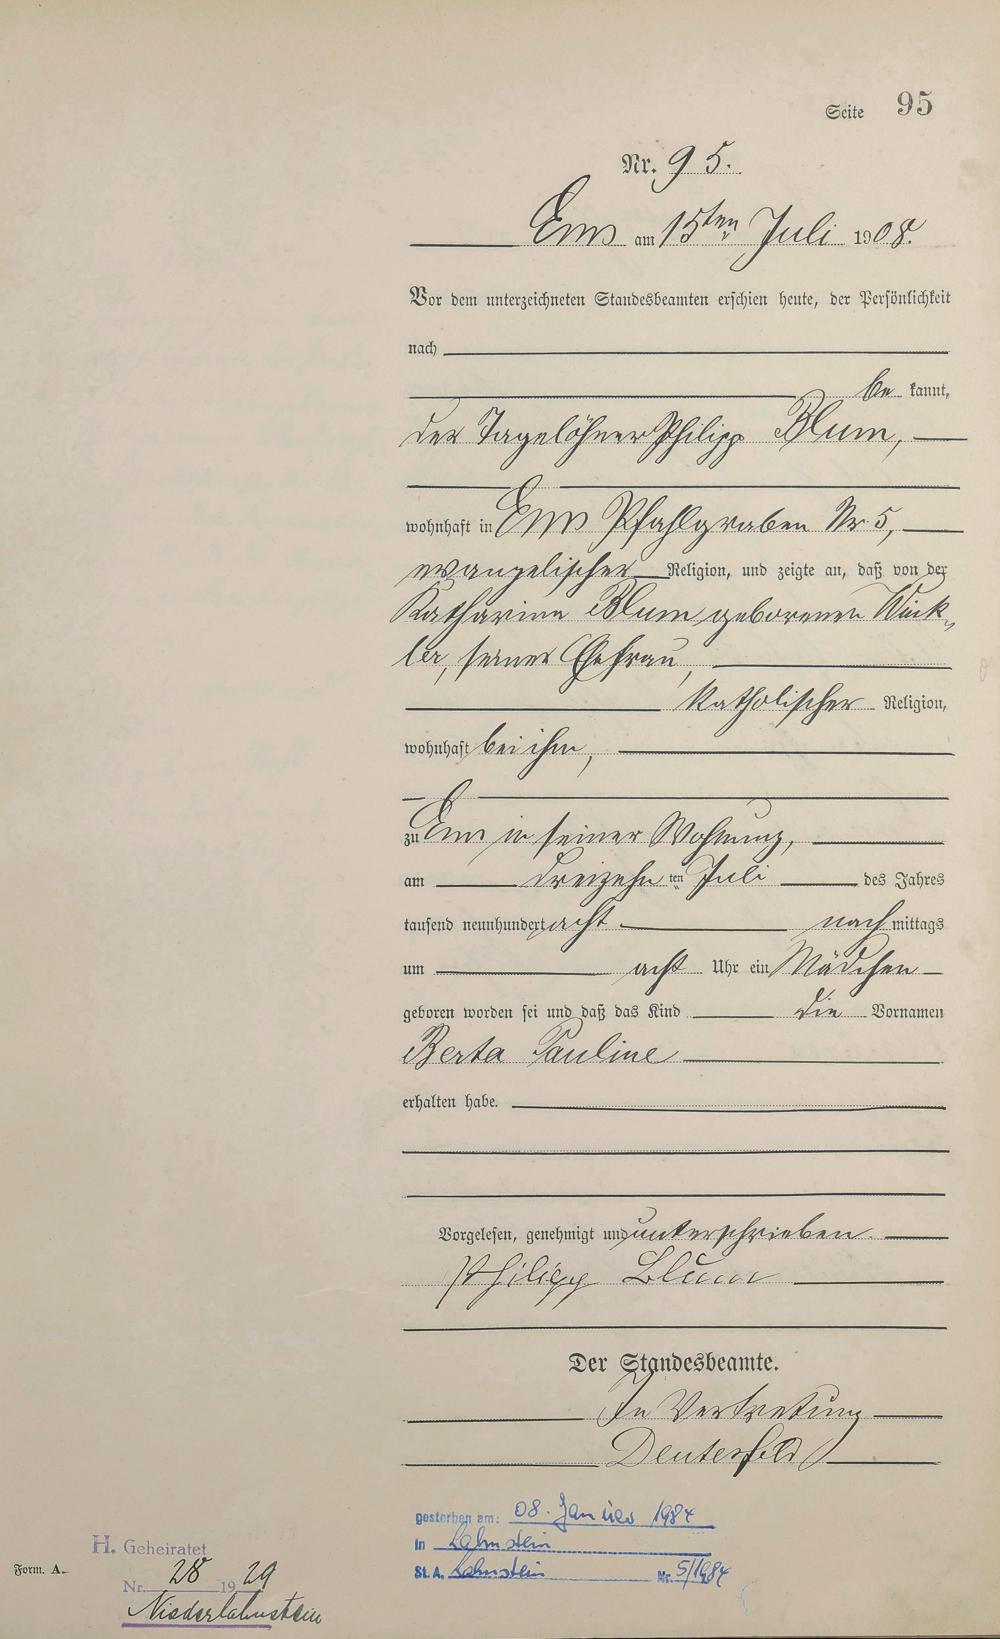 Seite 95
Nr. 95.
Ems am 15ten Juli 1908.
Vor dem unterzeichneten Standesbeamten erschien heute, der Persönlichkeit
nach
be kannt,
der Tagelöhner Philipp Blum,
wohnhaft in Ems Pfahlgraben Nr. 5,
evangelischer Religion, und zeigte an, daß von der
Katharina Blum geborenen Wink-
ler, seiner Ehefrau,
katholischer Religion,
wohnhaft bei ihm,
zu Ems in seiner Wohnung,
am dreizehnten Juli des Jahres
tausend neunhundert acht nach mittags
um acht Uhr ein Mädchen
geboren worden sei und daß das Kind die Vornamen
Berta Pauline
erhalten habe.
Vorgelesen, genehmigt und unterschrieben.
Philipp Blum
Der Standesbeamte.
In Vertretung
gestorben am: 08. Januar 1984
in Lahnstein
St. A. Lahnstein Nr. 5/1984
H. Geheiratet
Form. A.
Nr. 28 1929
Niederlahnstein